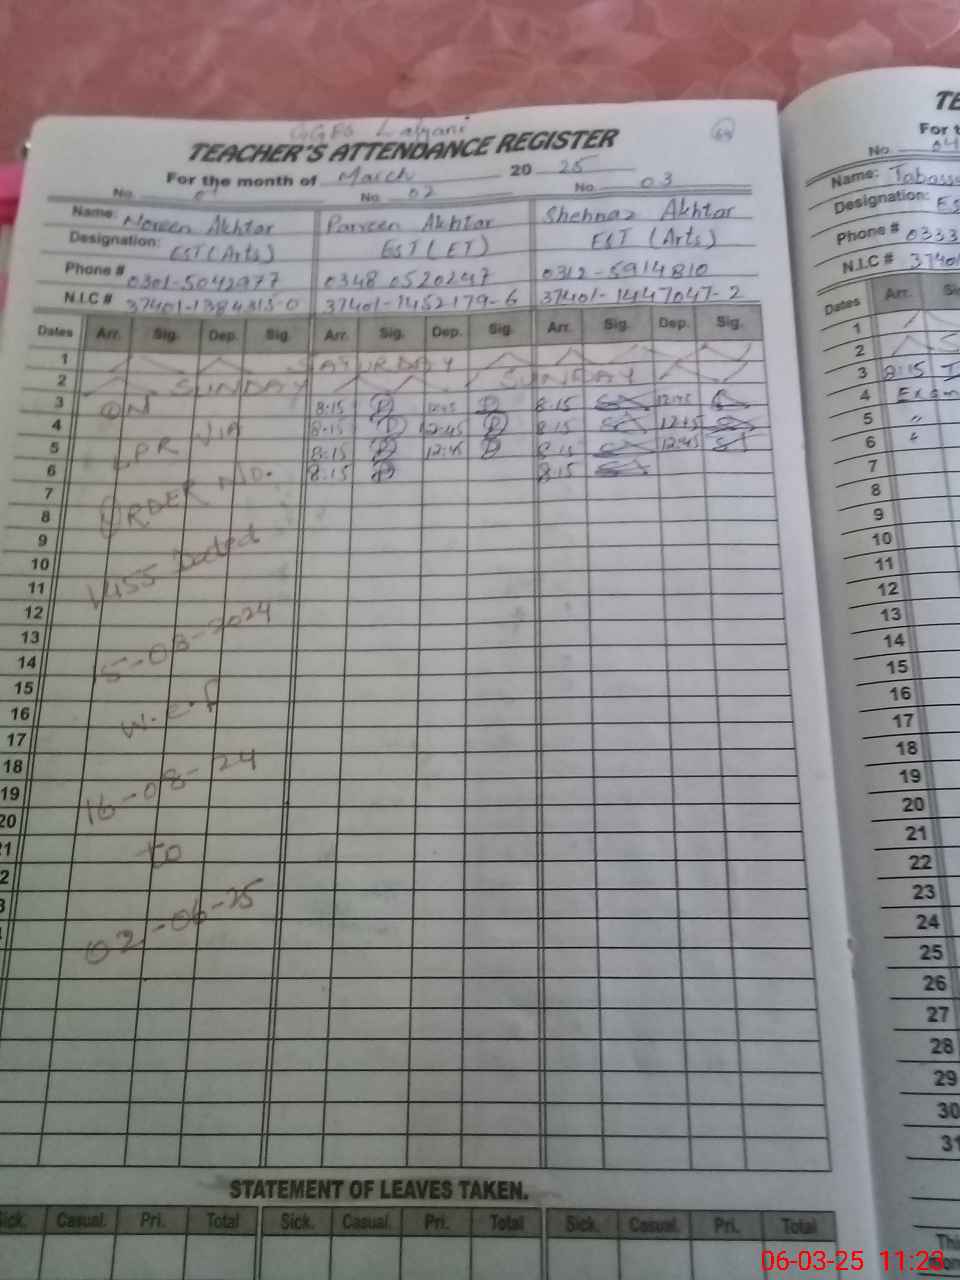 GGES Lalyani
TEACHER'S ATTENDANCE REGISTER
For the month of March 2025
No. 01 No. 02 No. 03
Name: Noreen Akhtar Parveen Akhtar Shehnaz Akhtar
Designation: EST (Arts) EST (ET) EST (Arts)
Phone # 0301-5042977 0348 0520247 0312-5914810
N.I.C # 37401-1384313-0 37401-1452179-6 37401-1447047-2
Dates Arr. Sig. Dep. Sig. Arr. Sig. Dep. Sig. Arr. Sig. Dep. Sig.
1 SATURDAY
2 SUNDAY SUNDAY
3 ON 8:15 12:45 8:15 12:45
4 8:15 12:45 8:15 12:45
5 LPR VIA 8:15 12:45 8:15 12:45
6 8:15 8:15
7 ORDER NO.
8
9
10 1455 Dated
11
12
13
14 15-08-2024
15
16 w.e.f
17
18
19 16-08-24
20
21 to
02-06-25
STATEMENT OF LEAVES TAKEN.
Sick. Casual. Pri. Total Sick. Casual. Pri. Total Sick. Casual. Pri. Total
No. 04
Name:
Designation:
Phone # 0333
N.I.C # 37401
Dates Arr.
1
2
3 8:15
4 Exam
5 "
6 "
7
8
9
10
11
12
13
14
15
16
17
18
19
20
21
22
23
24
25
26
27
28
29
30
31
06-03-25 11:23